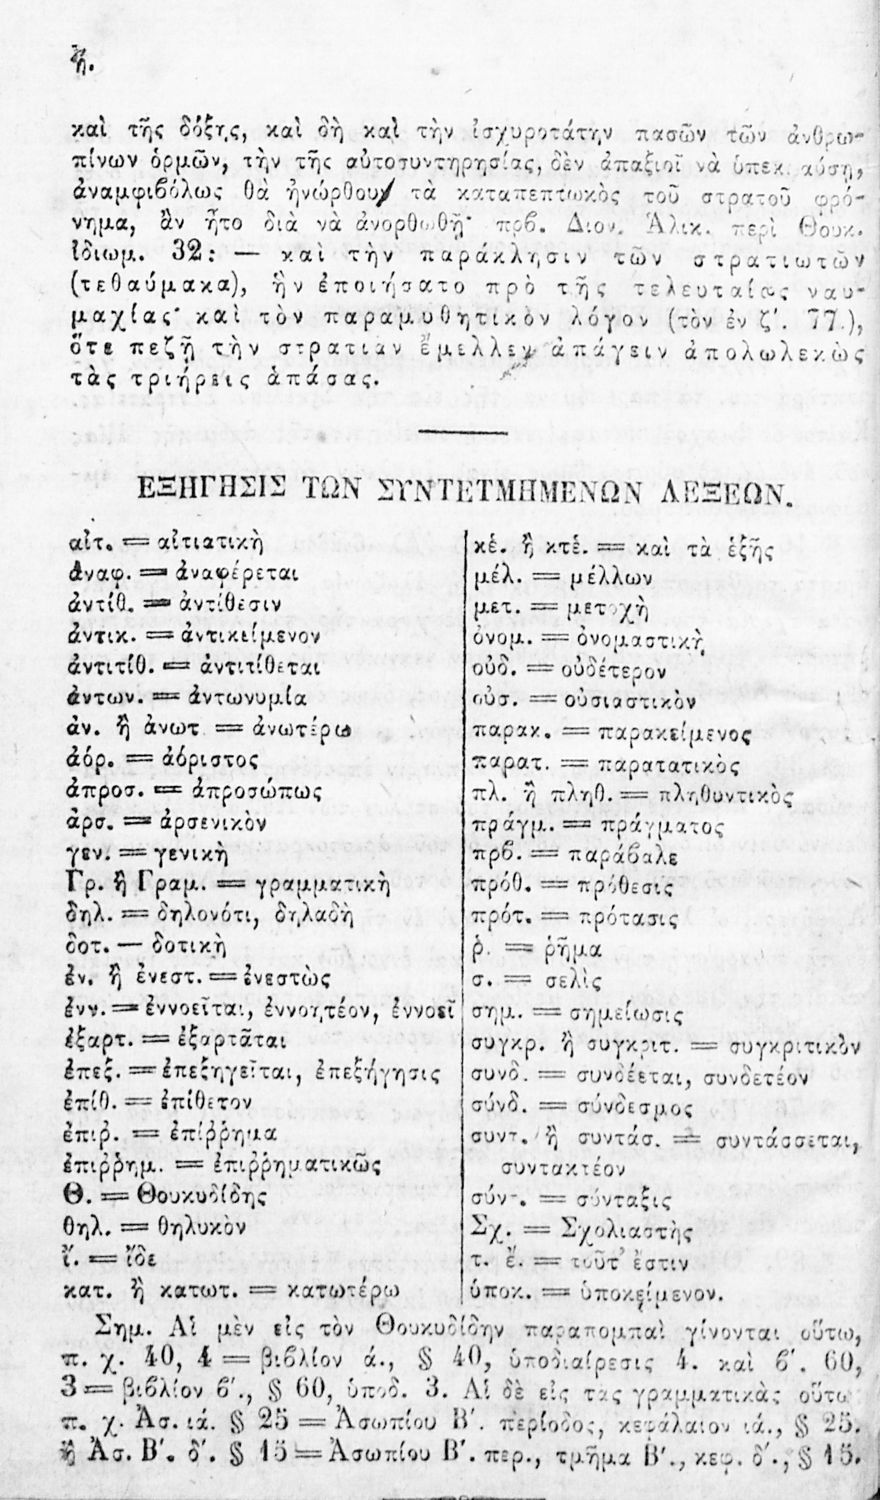 ή.
καὶ τῆς δόξης, καὶ δὴ καὶ τὴν ἰσχυροτάτην πασῶν τῶν ἀνθρω-
πίνων ὁρμῶν, τὴν τῆς αὐτοσυντηρησίας, δὲν ἀπαξιοῖ νὰ ὑπεκκαύσῃ,
ἀναμφιβόλως θὰ ἠνώρθου τὰ καταπεπτωκὸς τοῦ στρατοῦ φρό-
νημα, ἂν ἦτο διὰ νὰ ἀνορθωθῇ· πρβ. Διον. Ἁλικ. περὶ Θουκ.
ἰδιωμ. 32: — καὶ τὴν παράκλησιν τῶν στρατιωτῶν
(τεθαύμακα), ἣν ἐποιήσατο πρὸ τῆς τελευταίας ναυ-
μαχίας· καὶ τὸν παραμυθητικὸν λόγον (τὸν ἐν ζ′. 77.),
ὅτε πεζῇ τὴν στρατιὰν ἔμελλεν ἀπάγειν ἀπολωλεκὼς
τὰς τριήρεις ἁπάσας.
ΕΞΗΓΗΣΙΣ ΤΩΝ ΣΥΝΤΕΤΜΗΜΕΝΩΝ ΛΕΞΕΩΝ.
αἰτ. = αἰτιατικὴ
ἀναφ. = ἀναφέρεται
ἀντίθ. = ἀντίθεσιν
ἀντικ. = ἀντικείμενον
ἀντιτίθ. = ἀντιτίθεται
ἀντων. = ἀντωνυμία
ἀν. ἢ ἀνωτ. = ἀνωτέρω
ἀόρ. = ἀόριστος
ἀπροσ. = ἀπροσώπως
ἀρσ. = ἀρσενικὸν
γεν. = γενικὴ
Γρ. ἢ Γραμ. = γραμματικὴ
δηλ. = δηλονότι, δηλαδὴ
δοτ. — δοτικὴ
ἐν. ἢ ἐνεστ. = ἐνεστὼς
ἐνν. = ἐννοεῖται, ἐννοητέον, ἐννοεῖ
ἐξαρτ. = ἐξαρτᾶται
ἐπεξ. = ἐπεξηγεῖται, ἐπεξήγησις
ἐπίθ. = ἐπίθετον
ἐπιρ. = ἐπίῤῥημα
ἐπιῤῥημ. = ἐπιῤῥηματικῶς
Θ. = Θουκυδίδης
θηλ. = θηλυκὸν
ἴ. = ἴδε
κατ. ἢ κατωτ. = κατωτέρω
κἑ. ἢ κτἑ. = καὶ τὰ ἑξῆς
μέλ. = μέλλων
μετ. = μετοχὴ
ὀνομ. = ὀνομαστικὴ
οὐδ. = οὐδέτερον
οὐσ. = οὐσιαστικὸν
παρακ. = παρακείμενος
παρατ. = παρατατικὸς
πλ. ἢ πληθ. = πληθυντικὸς
πράγμ. = πράγματος
πρβ. = παράβαλε
πρόθ. = πρόθεσις
πρότ. = πρότασις
ῥ. = ῥῆμα
σ. = σελὶς
σημ. = σημείωσις
συγκρ. ἢ συγκριτ. = συγκριτικὸν
συνδ. = συνδέεται, συνδετέον
σύνδ. = σύνδεσμος
συντ. ἢ συντάσ. = συντάσσεται,
συντακτέον
σύντ. = σύνταξις
Σχ. = Σχολιαστὴς
τ. ἔ. = τοῦτ' ἔστιν
ὑποκ. = ὑποκείμενον.
Σημ. Αἱ μὲν εἰς τὸν Θουκυδίδην παραπομπαὶ γίνονται οὕτω,
π. χ. 40, 4 = βιβλίον ά., § 40, ὑποδιαίρεσις 4. καὶ β′. 60,
3 = βιβλίον β′., § 60, ὑποδ. 3. Αἱ δὲ εἰς τὰς γραμματικὰς οὕτω
π. χ. Ἀσ. ιά. § 25 = Ἀσωπίου Β′. περίοδος, κεφάλαιον ιά., § 25.
ἢ Ἀσ. Β′. δ′. § 15 = Ἀσωπίου Β′. περ., τμῆμα Β′., κεφ. δ′., § 15.